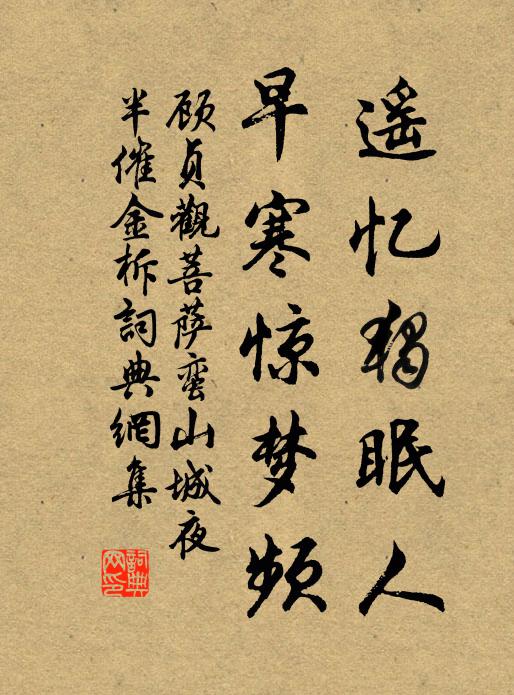 遥忆独眠人
早寒惊梦频
顾贞觀菩萨蛮山城夜
半催金柝詞典網集
詞典网印